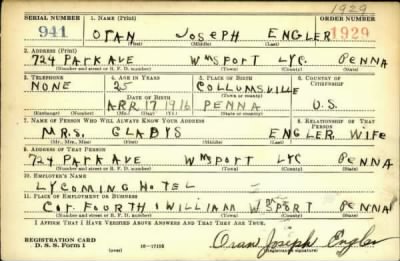 1929
SERIAL NUMBER 1. NAME (Print) ORDER NUMBER
941 ORAN JOSEPH ENGLER 1929
(First) (Middle) (Last)
2. ADDRESS (Print)
724 PARK AVE WMSPORT LYC. PENNA
(Number and street or R. F. D. number) (Town) (County) (State)
3. TELEPHONE 4. AGE IN YEARS 5. PLACE OF BIRTH 6. COUNTRY OF CITIZENSHIP
NONE 25 COLLUMSVILLE
DATE OF BIRTH (Town or county)
APR. 17 1916 PENNA U.S.
(Exchange) (Number) (Mo.) (Day) (Yr.) (State or country)
7. NAME OF PERSON WHO WILL ALWAYS KNOW YOUR ADDRESS 8. RELATIONSHIP OF THAT PERSON
MRS. GLADYS ENGLER WIFE
(Mr., Mrs., Miss) (First) (Middle) (Last)
9. ADDRESS OF THAT PERSON
724 PARK AVE WMSPORT LYC PENNA
(Number and street or R. F. D. number) (Town) (County) (State)
10. EMPLOYER'S NAME
LYCOMING HOTEL
11. PLACE OF EMPLOYMENT OR BUSINESS
COR FOURTH & WILLIAM WMSPORT PENNA
(Number and street or R. F. D. number) (Town) (County) (State)
I AFFIRM THAT I HAVE VERIFIED ABOVE ANSWERS AND THAT THEY ARE TRUE.
REGISTRATION CARD
D. S. S. Form 1 (over) 16—17105 Oran Joseph Engler
(Registrant's signature)